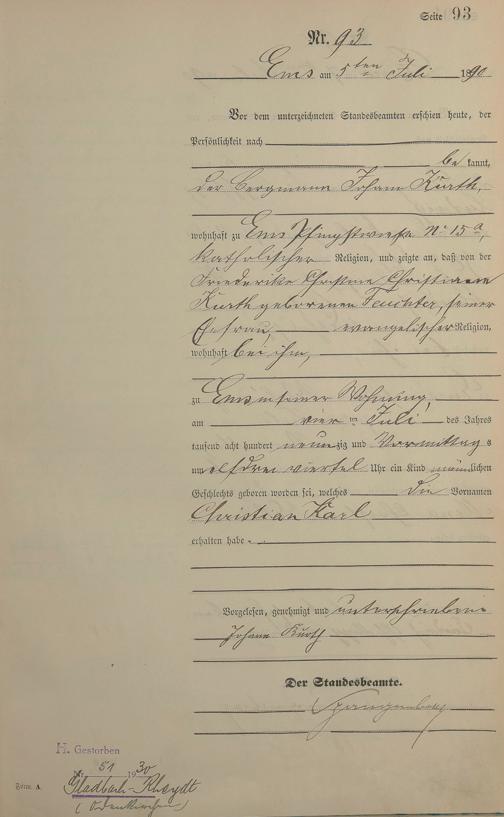 Seite 93
Nr. 93
Ems am 5ten Juli 1890
Vor dem unterzeichneten Standesbeamten erschien heute, der
Persönlichkeit nach
be kannt,
der Bergmann Johann Kurth,
wohnhaft zu Ems Pfingstwiese No 15a,
katholischer Religion, und zeigte an, daß von der
Friederike Christiane
Kurth geborenen Feuchter, seiner
Ehefrau, evangelischer Religion,
wohnhaft bei ihm,
zu Ems in seiner Wohnung,
am vierten Juli des Jahres
tausend acht hundert neunzig und Vormittags
um elf drei viertel Uhr ein Kind männlichen
Geschlechts geboren worden sei, welches die Vornamen
Christian Karl
erhalten habe.
Vorgelesen, genehmigt und unterschrieben
Johann Kurth
Der Standesbeamte.
Spangenberg
H. Gestorben
Nr. 51 1930
Gladbach-Rheydt
(Odenkirchen)
Form. A.